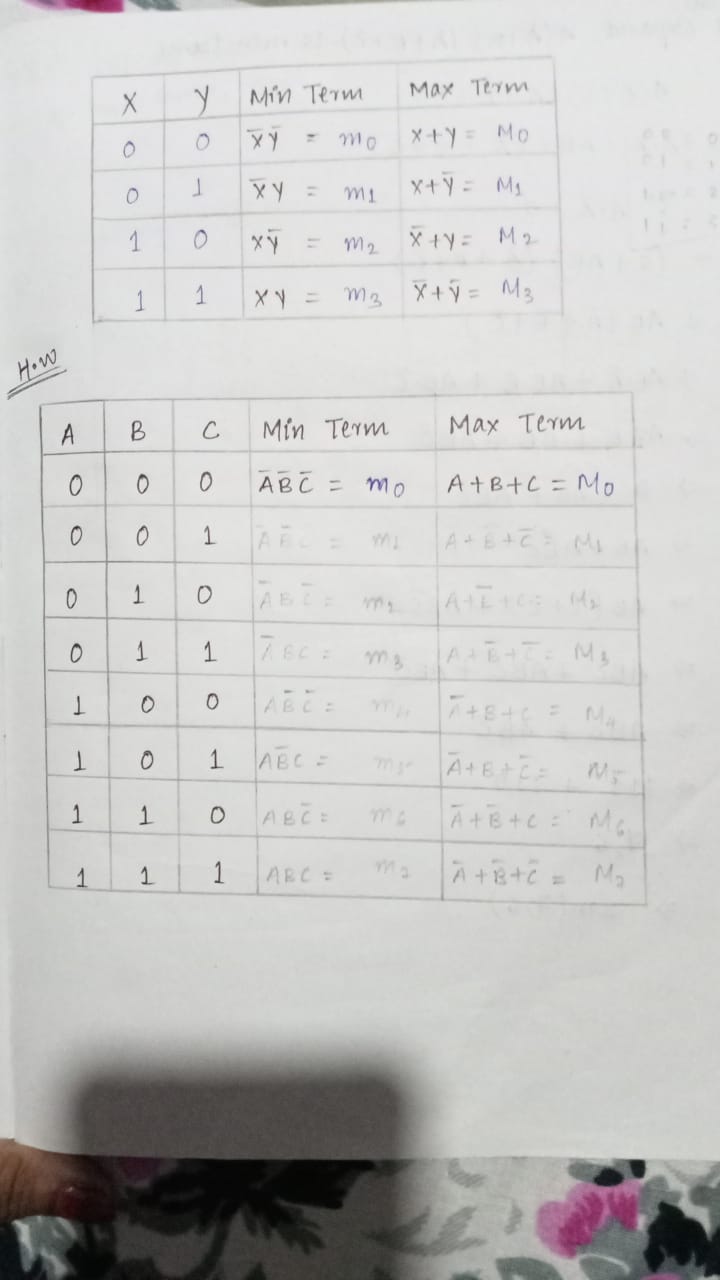 X Y Min Term Max Term
0 0 X̅Y̅ = m0 X+Y = M0
0 1 X̅Y = m1 X+Y̅ = M1
1 0 XY̅ = m2 X̅+Y = M2
1 1 XY = m3 X̅+Y̅ = M3
H.W
A B C Min Term Max Term
0 0 0 A̅B̅C̅ = m0 A+B+C = M0
0 0 1 A̅B̅C = m1 A+B̅+C̅ = M1
0 1 0 A̅BC̅ = m2 A+B̅+C = M2
0 1 1 A̅BC = m3 A+B̅+C̅ = M3
1 0 0 AB̅C̅ = m4 A̅+B+C = M4
1 0 1 AB̅C = m5 A̅+B+C̅ = M5
1 1 0 ABC̅ = m6 A̅+B̅+C = M6
1 1 1 ABC = m7 A̅+B̅+C̅ = M7